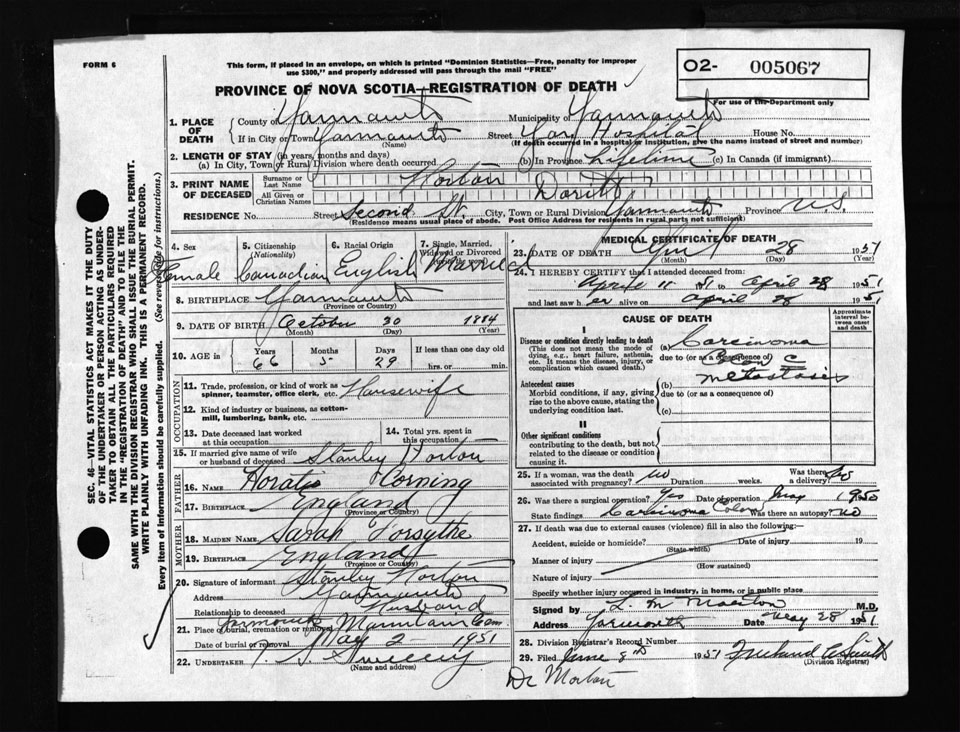 FORM 6
This form, if placed in an envelope, on which is printed "Dominion Statistics—Free, penalty for improper
use $300," and properly addressed will pass through the mail "FREE"
O2- 005067
PROVINCE OF NOVA SCOTIA—REGISTRATION OF DEATH
For use of the Department only
1. PLACE OF DEATH
County of Yarmouth Municipality of Yarmouth
If in City or Town Yarmouth Street Yar. Hospital House No.
(Name) (If death occurred in a hospital or institution, give the name instead of street and number)
2. LENGTH OF STAY (in years, months and days)
(a) In City, Town or Rural Division where death occurred (b) In Province Lifetime (c) In Canada (if immigrant)
3. PRINT NAME OF DECEASED
Surname or Last Name Horton
All Given or Christian Names
RESIDENCE No. Street Second St. City, Town or Rural Division Yarmouth Province N.S.
(Residence means usual place of abode. Post Office Address for residents in rural parts not sufficient)
4. Sex Female
5. Citizenship (Nationality) Canadian
6. Racial Origin English
7. Single, Married, Widowed or Divorced Married
8. BIRTHPLACE Yarmouth
(Province or Country)
9. DATE OF BIRTH October 30 1884
(Month) (Day) (Year)
10. AGE in Years Months Days If less than one day old
66 5 29 hrs. or min.
OCCUPATION
11. Trade, profession, or kind of work as spinner, teamster, office clerk, etc. Housewife
12. Kind of industry or business, as cotton-mill, lumbering, bank, etc.
13. Date deceased last worked at this occupation
14. Total yrs. spent in this occupation
15. If married give name of wife or husband of deceased Stanley Horton
FATHER
16. NAME Horatio Corning
17. BIRTHPLACE England
(Province or Country)
MOTHER
18. MAIDEN NAME Sarah Forsythe
19. BIRTHPLACE England
(Province or Country)
20. Signature of informant Stanley Horton
Address Yarmouth
Relationship to deceased Husband
21. Place of burial, cremation or removal Yarmouth Mountain Cem.
Date of burial or removal May 2 1951
22. UNDERTAKER Sweeny
(Name and address)
MEDICAL CERTIFICATE OF DEATH
23. DATE OF DEATH April 28 1951
(Month) (Day) (Year)
24. I HEREBY CERTIFY that I attended deceased from
April 11 1951 to April 28 1951
and last saw her alive on April 28 1951
CAUSE OF DEATH
Approximate interval between onset and death
I
Disease or condition directly leading to death (a) Carcinoma
(This does not mean the mode of dying, e.g., heart failure, asthenia, etc. It means the disease, injury, or complication which caused death.)
due to (or as a consequence of)
Colon c
metastasis
Antecedent causes
Morbid conditions, if any, giving rise to the above cause, stating the underlying condition last.
(b)
due to (or as a consequence of)
(c)
II
Other significant conditions
contributing to the death, but not related to the disease or condition causing it.
25. If a woman, was the death associated with pregnancy? no Duration weeks. Was there a delivery? no
26. Was there a surgical operation? Yes Date of operation May 1950
State findings Carcinoma Colon Was there an autopsy? no
27. If death was due to external causes (violence) fill in also the following:—
Accident, suicide or homicide? Date of injury 19
(State which)
Manner of injury
(How sustained)
Nature of injury
Specify whether injury occurred in industry, in home, or in public place
Signed by L. M. Morton M.D.
Address Yarmouth Date May 28 1951
28. Division Registrar's Record Number
29. Filed June 8th 1951
(Division Registrar)
Dr Morton
SEC. 46—VITAL STATISTICS ACT MAKES IT THE DUTY
OF THE UNDERTAKER OR PERSON ACTING AS UNDER-
TAKER TO OBTAIN ALL THE PARTICULARS REQUIRED
IN THE "REGISTRATION OF DEATH" AND TO FILE THE
SAME WITH THE DIVISION REGISTRAR WHO SHALL ISSUE THE BURIAL PERMIT.
WRITE PLAINLY WITH UNFADING INK. THIS IS A PERMANENT RECORD.
Every item of information should be carefully supplied. (See reverse side for instructions.)